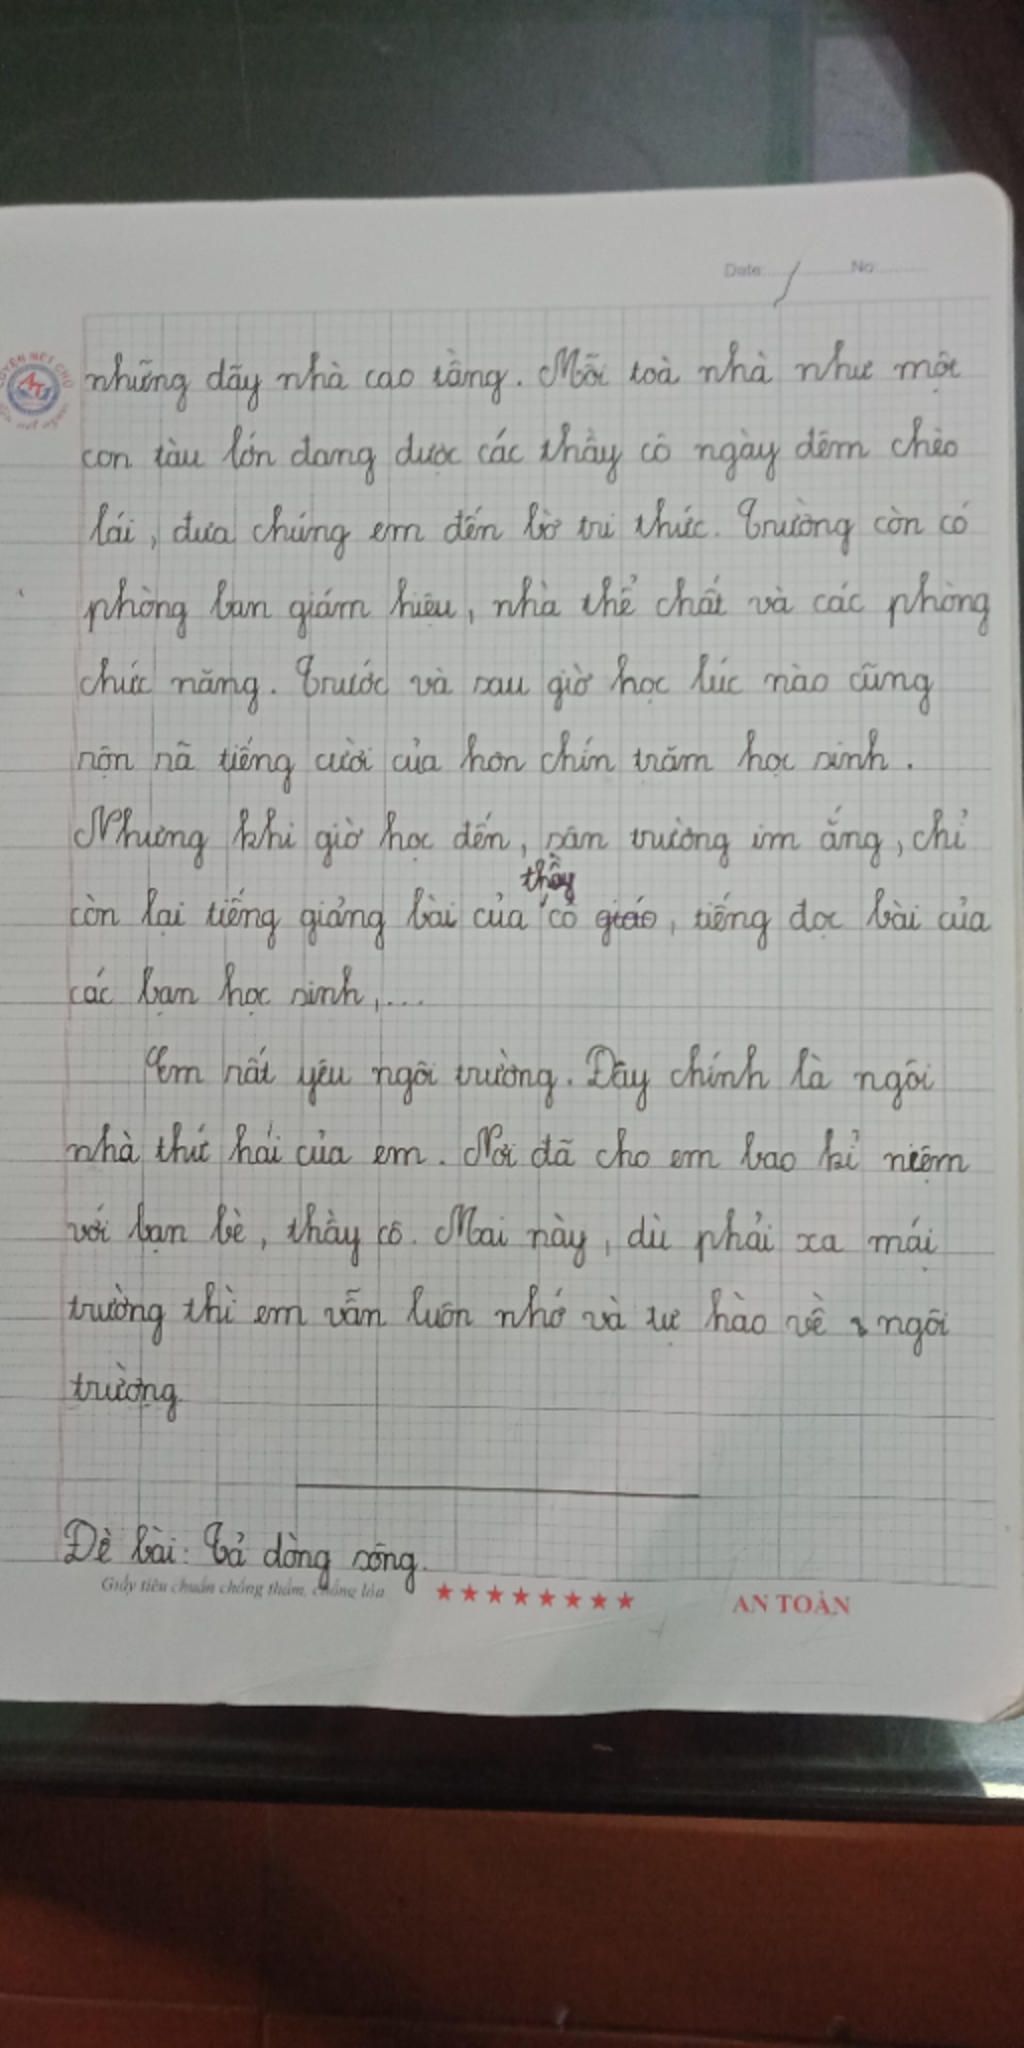 Date: No:
những dãy nhà cao tầng. Mỗi toà nhà như một
con tàu lớn đang được các thầy cô ngày đêm chèo
lái, đưa chúng em đến bờ tri thức. Trường còn có
phòng ban giám hiệu, nhà thể chất và các phòng
chức năng. Trước và sau giờ học lúc nào cũng
rộn rã tiếng cười của hơn chín trăm học sinh.
Nhưng khi giờ học đến, sân trường im ắng, chỉ
thầy
còn lại tiếng giảng bài của cô giáo, tiếng đọc bài của
các bạn học sinh,...
Em rất yêu ngôi trường. Đây chính là ngôi
nhà thứ hai của em. Nơi đã cho em bao kỉ niệm
với bạn bè, thầy cô. Mai này, dù phải xa mái
trường thì em vẫn luôn nhớ và tự hào về ngôi
trường.
Đề bài: Tả dòng sông.
Giấy tiêu chuẩn chống thấm, chống lóa ★★★★★★★★ AN TOÀN